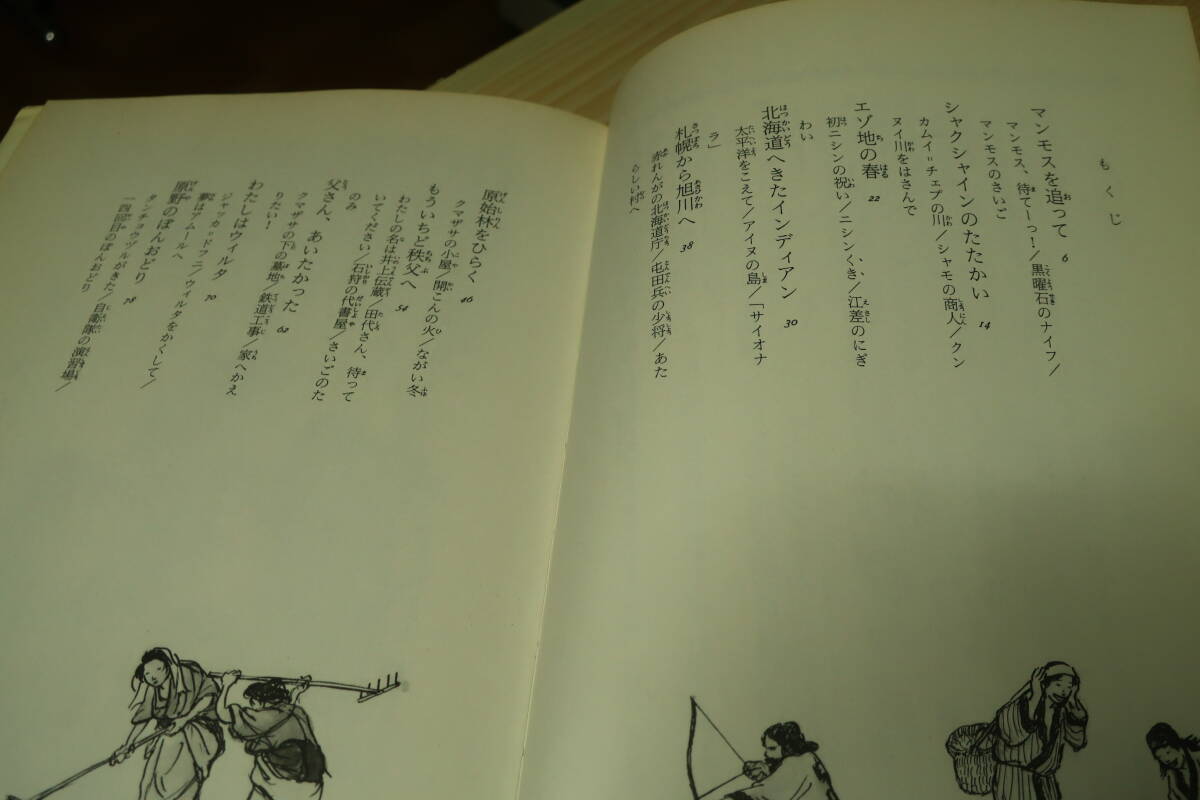 もくじ
マンモスを追って 6
マンモス、待てーっ!/黒曜石のナイフ/
マンモスのさいご
シャクシャインのたたかい 14
カムイ=チェプの川/シャモの商人/クン
ヌイ川をはさんで
エゾ地の春 22
初ニシンの祝い/ニシンくき/江差のにぎ
わい
北海道へきたインディアン 30
太平洋をこえて/アイヌの島/「サイオナ
ラ」
札幌から旭川へ 38
赤れんがの北海道庁/屯田兵の少将/あた
らしい村へ
原始林をひらく 46
クマザサの小屋/開こんの火/ながい冬
もういちど秩父へ 54
わたしの名は井上伝蔵/田代さん、待って
いてください/石狩の代書屋/さいごのた
のみ
父さん、あいたかった 62
クマザサの下の墓地/鉄道工事/家へかえ
りたい!
わたしはウィルタ 70
ジャッカ=ドフニ/ウィルタをかくして/
夢はアムールへ
原野のぼんおどり 78
タンチョウヅルがきた/自衛隊の演習場/
一四回目のぼんおどり